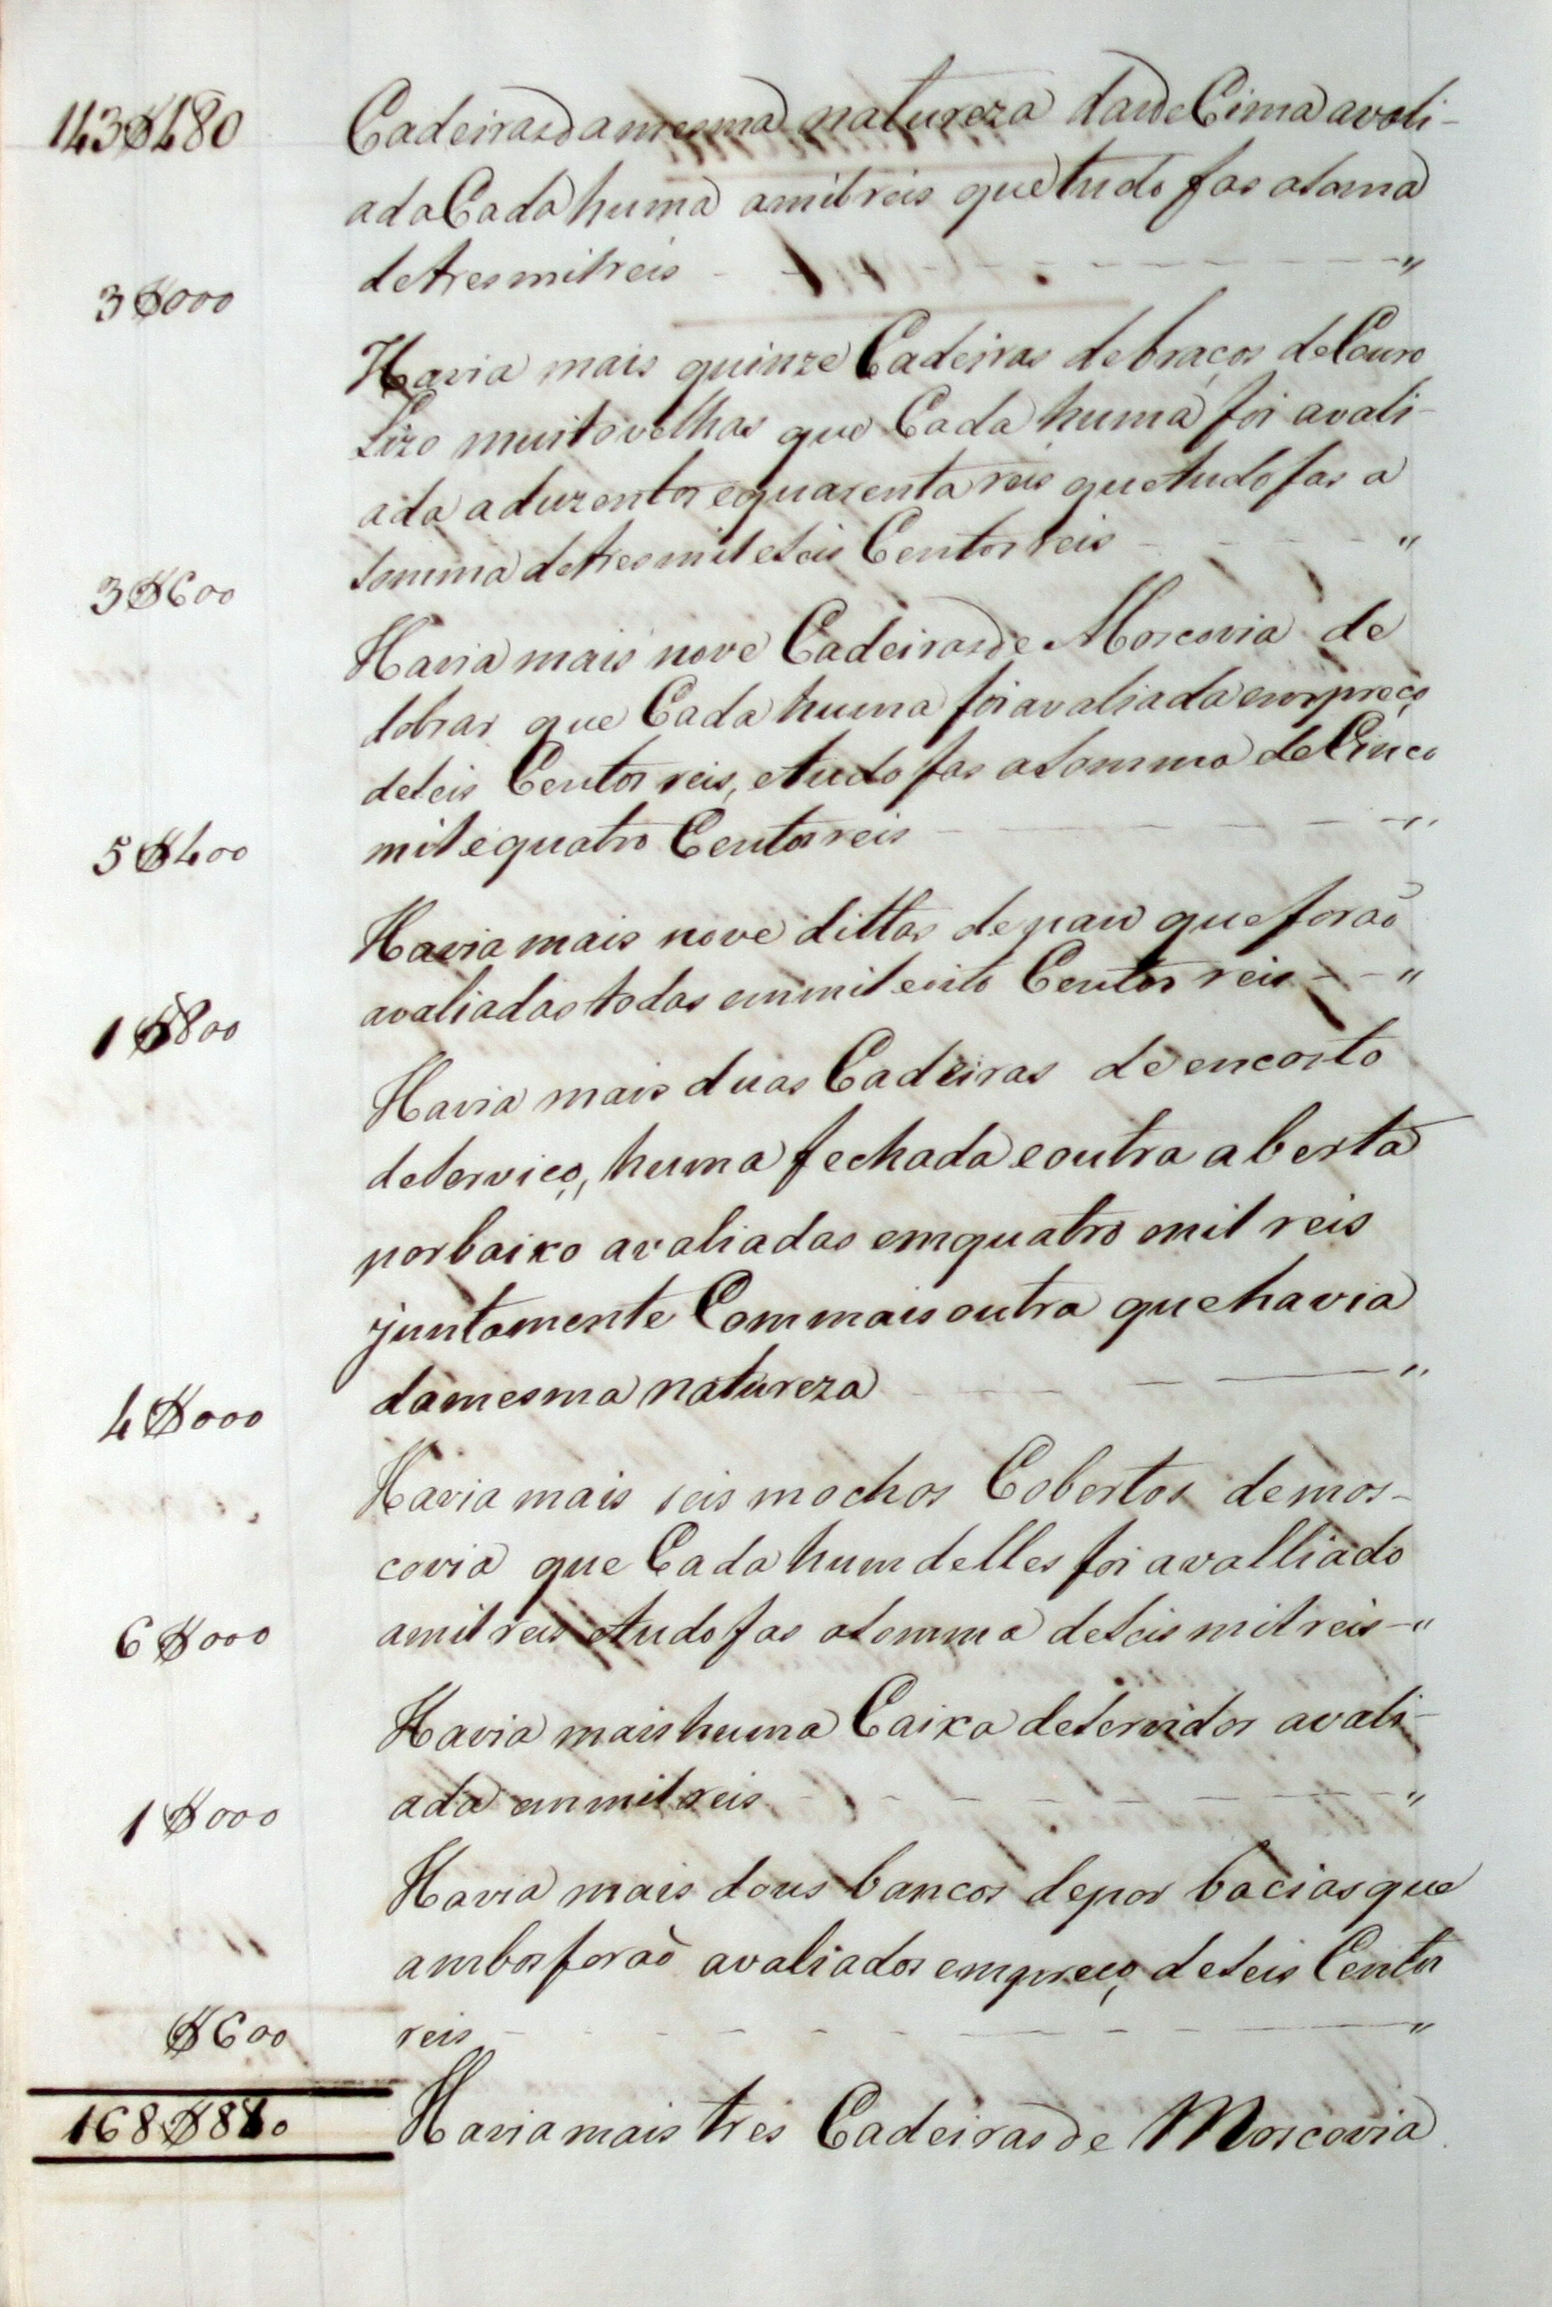 143$480 Cadeiras da mesma natureza das de Cima avali-
ada Cada huma a mil reis que tudo fas a soma
de tres mil reis - - - - - - - "
3$000
Havia mais quinze Cadeiras de braços de Couro
Lizo muito velhas que Cada huma foi avali-
ada a duzentos e quarenta reis que tudo fas a
somma de tres mil e seis Centos reis - - - - "
3$600
Havia mais nove Cadeiras de Moscovia de
dobrar que Cada huma foi avaliada em preço
de seis Centos reis, e tudo fas a somma de Cinco
5$400 mil e quatro Centos reis - - - - - "
Havia mais nove dittas de pau que forão
avaliadas todas em mil e oito Centos reis - - "
1$800
Havia mais duas Cadeiras de encosto
de serviço, huma fechada e outra aberta
por baixo avaliadas em quatro mil reis
juntamente Com mais outra que havia
da mesma natureza - - - - "
4$000
Havia mais seis mochos Cobertos de mos-
covia que Cada hum delles foi avalliado
6$000 a mil reis e tudo fas a somma de seis mil reis - "
Havia mais huma Caixa de servidor avali-
1$000 ada em mil reis - - - - - - - "
Havia mais dous bancos de por bacias que
ambos forão avaliados em preço de seis Centos
$600 reis - - - - - - - - "
168$880 Havia mais tres Cadeiras de Moscovia